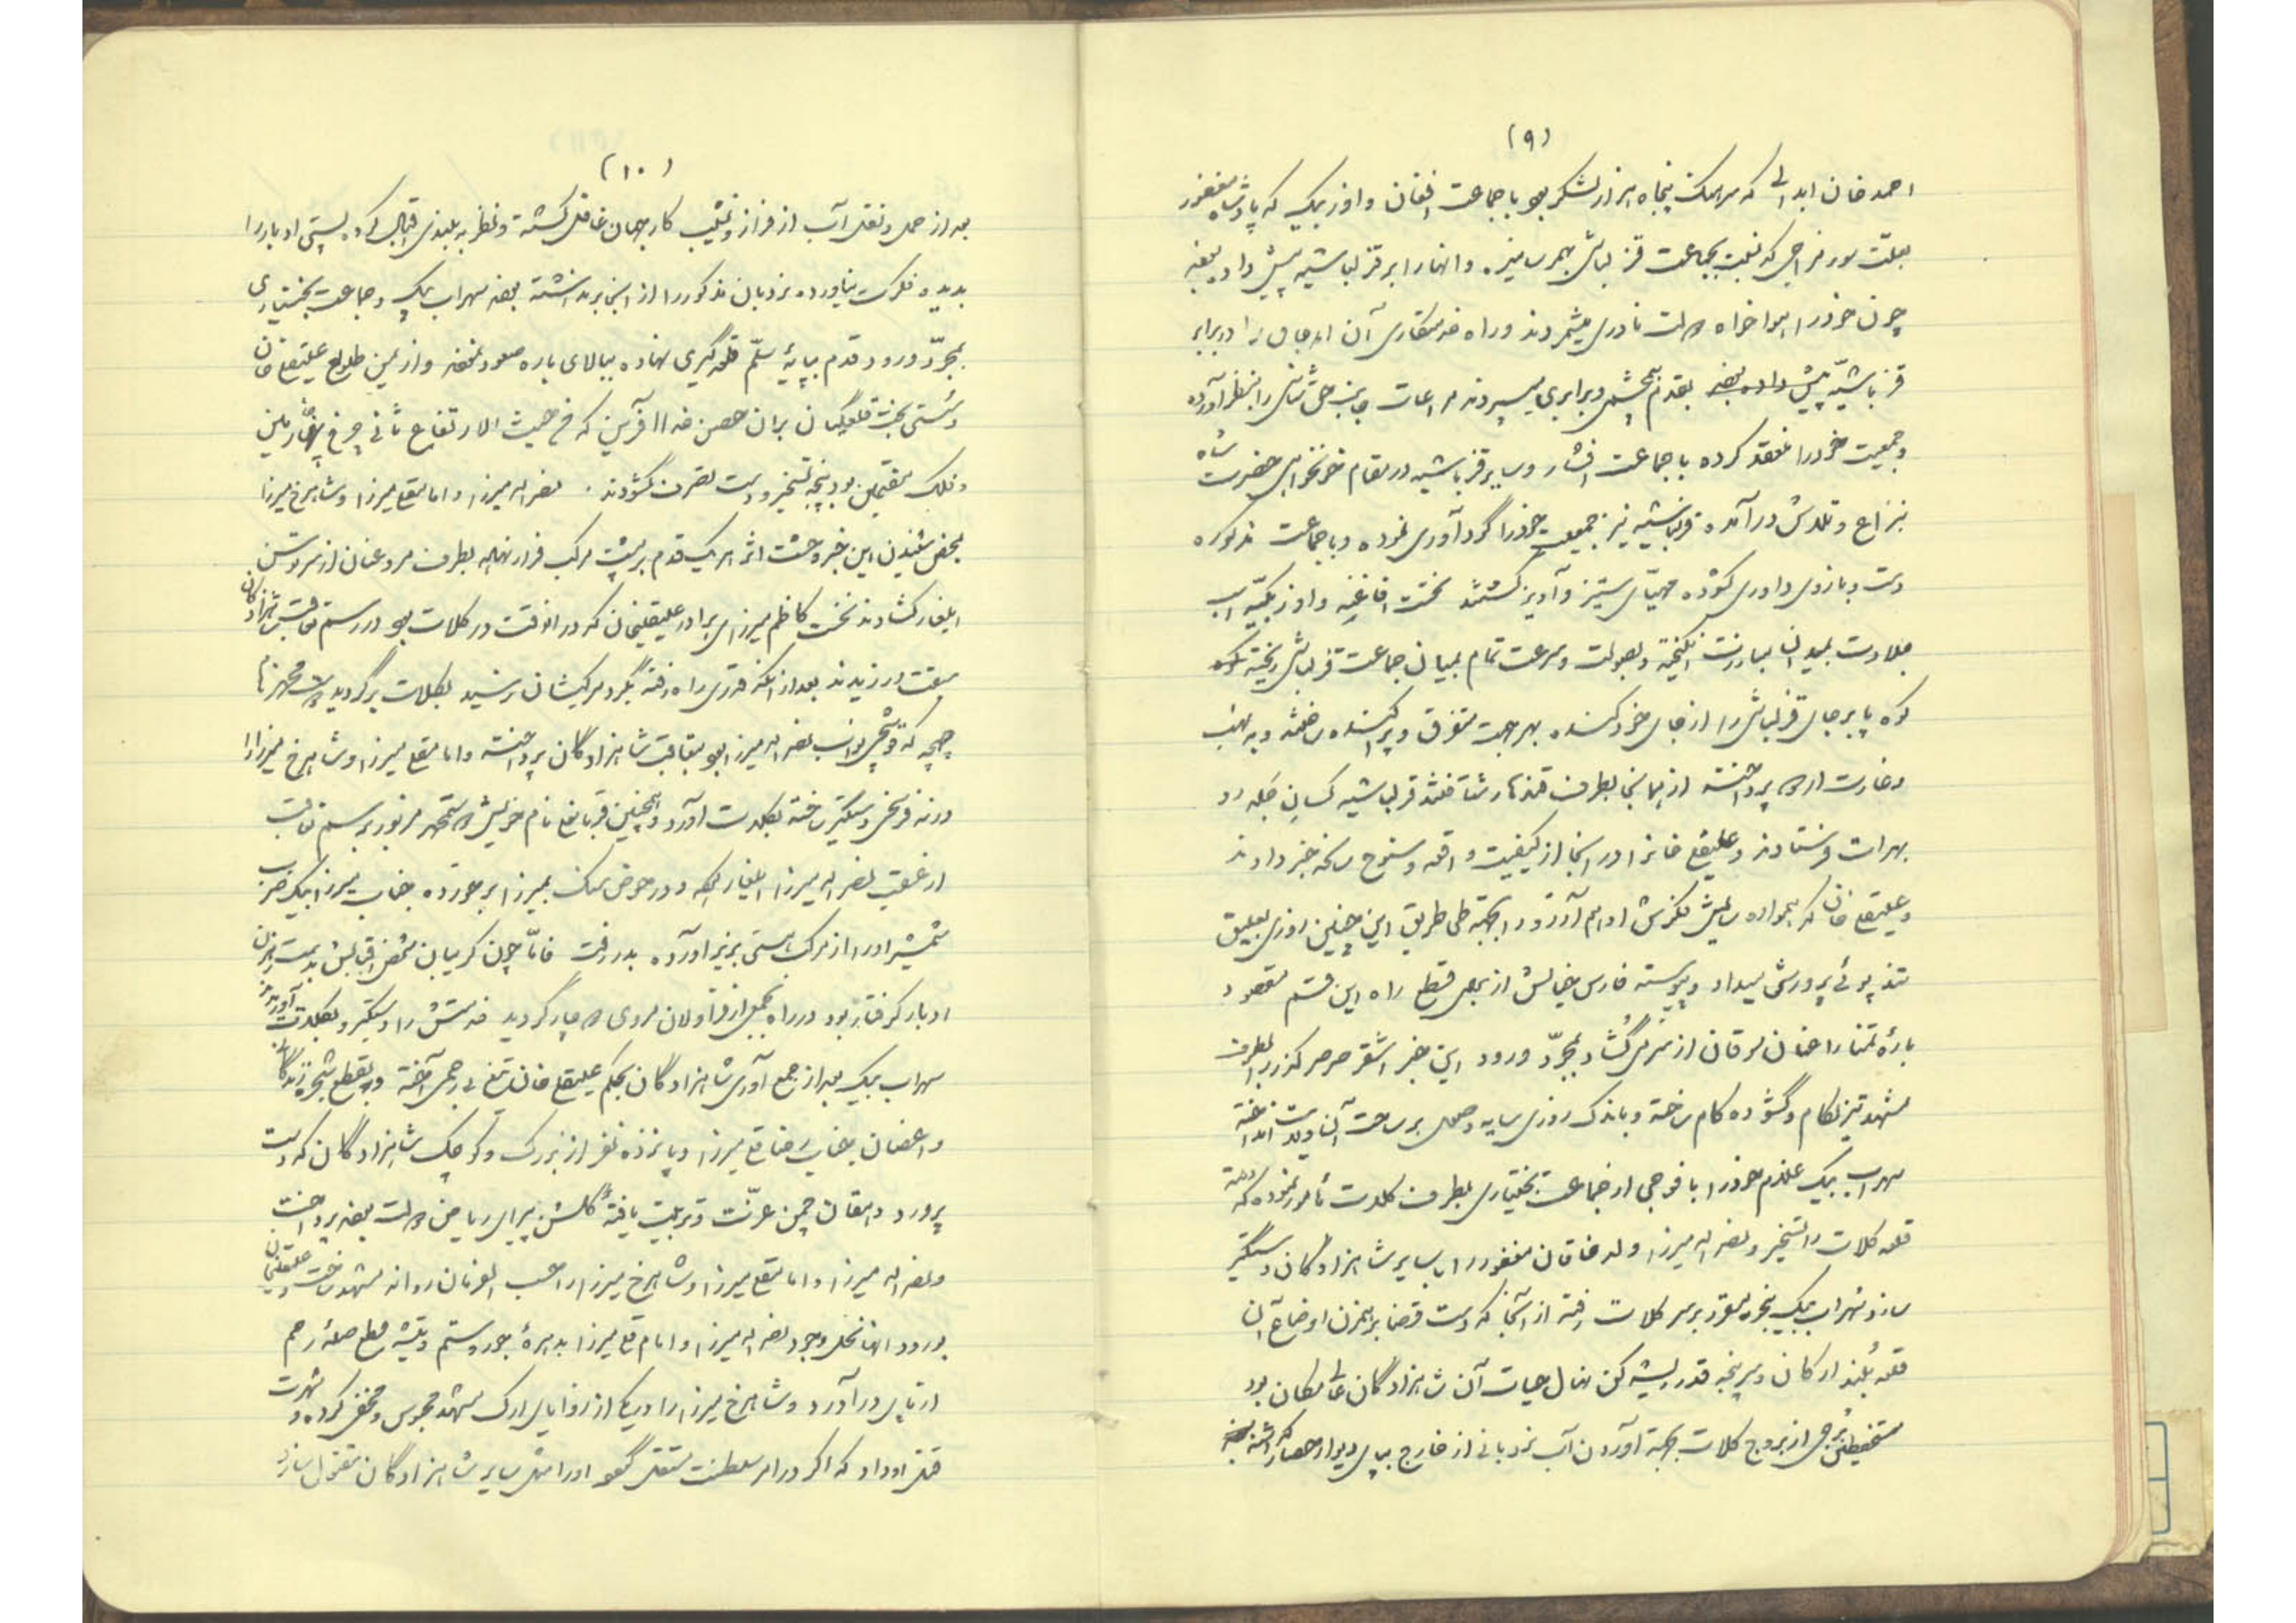 (۹)
احمد خان ابدالی که سرهنگ پنجاه هزار لشکر بود با جماعت افغان و اوزبک که پادشاه مغفور
بعلت سوء مزاجی که نسبت بجماعت قزلباش بهم رسانیده و آنها را بر قزلباشیه پیش داده بودند
چون خود را هواخواه دولت نادری میشمردند و راه خدمتکاری آن اوجاق را در برابر
قزلباشیّه پیش داده بودند بقدم همچشمی و برابری میسپردند مراعات جانب حق شناسی را منظور آورده
و جمعیت خود را منعقد کرده با جماعت افشار و سایر قزلباشیه در مقام خونخواهی حضرت شاه
بنزاع و تلاش درآمده قزلباشیه نیز جمعیت خود را گردآوری نموده و با جماعت مذکوره
دست و بازوی داوری گشوده مهیّای ستیز و آویز گشتند نخست افاغنه و اوزبکیّه اسب
جلادت بمیدان مبارزت انگیخته و بصولت و سرعت تمام بمیان جماعت قزلباش ریخته
کوه پابرجای قزلباش را از جای خود کنده بهر جهت متفرق و پراکنده ساختند و به نهب
و غارت اردو پرداخته از همانجا بطرف قندهار شتافتند قزلباشیه کسان جلد رو
بهرات فرستادند و علیقلی خانرا در آنجا از کیفیت واقعه و سنوح سانحه خبر دادند
و علیقلی خان که همواره سایش نگرش ادهم آرزو را بجهة طی طریق این چنین روزی بعلیق
تندپوئی پرورش میداد و پیوسته فارس خیالش از بهر قطع راه این قسم مقصود
بارهٔ تمنا را عنان یرقان از سر میگشاد بمجرّد ورود این خبر اشقر صرصر گذر را بطرف
مشهد تیز لگام و گشوده کام ساخته و باندک روزی سایه وصول بر ساحت آن ولایت انداخته
سهراب بیک غلام خود را با فوجی از جماعت بختیاری بطرف کلات مأمور نموده که رفته
قلعه کلات را تسخیر و نصراله میرزا ولد خاقان مغفور را با سایر شاهزادگان دستگیر
سازد سهراب بیک بنحو مقرر بر سر کلات رفته از آنجا که دست قضا برهمزن اوضاع آن
قلعه بُلند ارکان و سرپنجه قدر ریشه کن نهال حیات آن شاهزادگان عالی مکان بود
مستحفظین بُرجی از بروج کلات بجهة آوردن آب نردبانی از خارج بپای دیوار حصار گذاشته بودند
(۱۰)
بعد از حمل و نقل آب از فراز و نشیب کار جهان غافل گشته و نظر به بلندی اقبال کرده پستی ادبار را
بدیده فکرت نیاورده نردبان مذکور را از آنجا برنداشته بودند سهراب بیک و جماعت بختیاری
بمجرّد ورود قدم بپایهٔ سلّم قلعه گیری نهاده ببالای باره صعود نمودند و از یمن طلوع علیقلی خان
و سستی بخت قلعگیان بران حصن خدا آفرین که من حیث الارتفاع ثانی چرخ
و فلک هفتمین بود پنجه تسخیر و دست تصرف گشودند . نصراله میرزا و امامقلی میرزا و شاهرخ میرزا
بمحض شنیدن این خبر وحشت اثر هر یک قدم بر پشت مرکب فرار نهاده بطرف مرو عنان از سر توسن
ایلغار گشادند نخست کاظم میرزای برادر علیقلیخان که در آنوقت در کلات بود در رسم تعاقب شاهزادگان
سبقت ورزیدند بعد از آنکه قدری راه رفته بگرد مرکبشان نرسید بکلات برگردید دوست محمد نام
چچه که قوشچی نواب نصراله میرزا بود بتعاقب شاهزادگان پرداخته و امامقلی میرزا و شاهرخ میرزا را
در نه فرسخی دستگیر ساخته بکلات آورد و همچنین قربانعلی نام خویش دوستمحمد مزبور برسم تعاقب
از عقب نصراله میرزا ایلغار کرده و در حوض سنگ بمیرزا برخورده جناب میرزا بیک ضرب
شمشیر او را از مرکب هستی بزیر آورده بدر رفت فامّا چون گریبان شخص اقبالش بدست رهزن
ادبار گرفتار بود در راه بجمعی از قراولان مروی دوچار گردید خدمتش را دستگیر و بکلات آوردند
سهراب بیک بعد از جمع آوری شاهزادگان بحکم علیقلی خان تیغ بی رحمی آخته و بقطع شجره زندگانی
و اغصان جناب رضاقلی میرزا و پانزده نفر از بزرگ و کوچک شاهزادگان که دست
پرورد دهقان چمن عزّت و تربیت یافتهٔ گلشن پیرای ریاض دولت بودند پرداخت
و نصراله میرزا و امامقلی میرزا و شاهرخ میرزا را حسب الفرمان روانه مشهد ساخت و علیقلیخان
بورود آنها نخل وجود نصراله میرزا و امام قلی میرزا بدهرهٔ جور و ستم و تیشه قطع صلهٔ رحم
از پای درآورد و شاهرخ میرزا را در یکی از زوایای ارک مشهد محبوس و مخفی کرده و شهرت
قتل او داد که اگر در امر سلطنت مستقل گردد او را مثل سایر شاهزادگان مقتول سازد